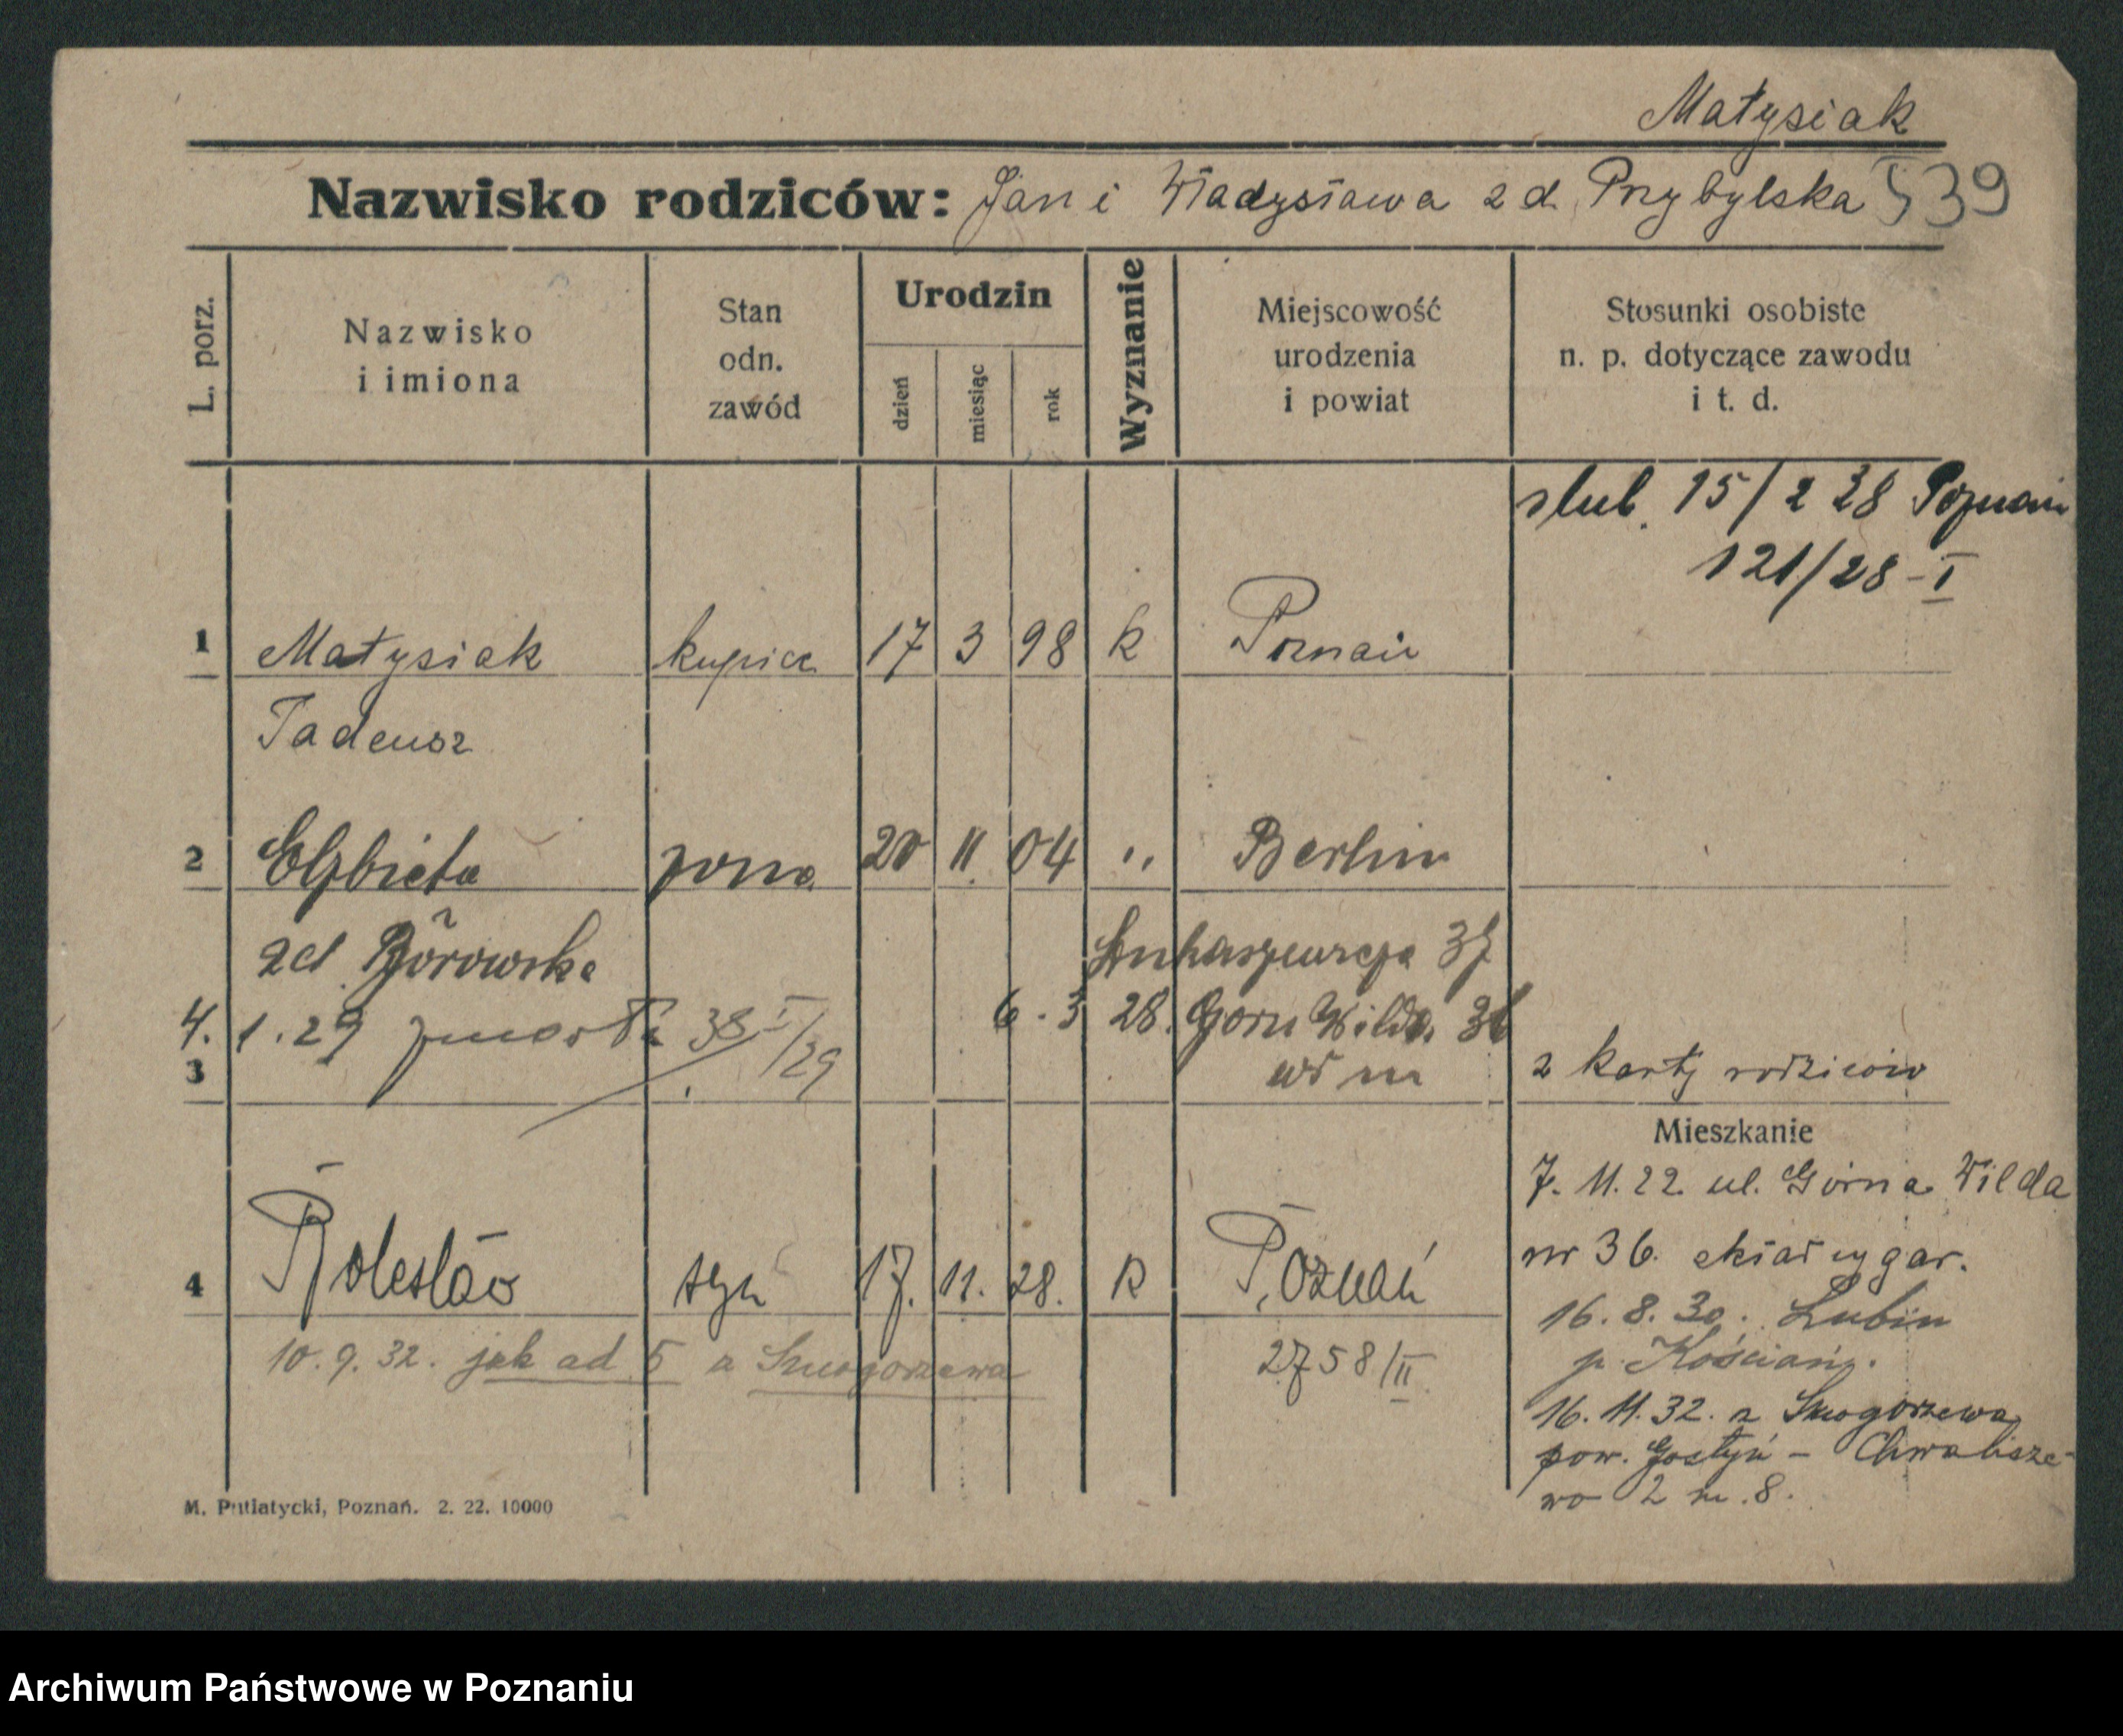 Matysiak
Nazwisko rodziców: Jan i Władysława zd. Przybylska 539
L. porz.
Nazwisko i imiona
Stan odn. zawód
Urodzin
dzień
miesiąc
rok
Wyznanie
Miejscowość urodzenia i powiat
Stosunki osobiste n. p. dotyczące zawodu i t. d.
slub. 15/2 28 Poznań
121/28-I
1 Matysiak kupiec 17 3 98 k Poznań
Tadeusz
2 Elżbieta żona 20 11 04 ,, Berlin
zd Borowska Łukaszewicza 37
4. 1. 29 zmarła 38 I/29 6. 3 28. Górn Wilda 36
3 wł m z karty rodziców
Mieszkanie
4 Bolesław syn 17. 11. 28. k Poznań
10. 9. 32. jak ad 5 z Smogorzewa 2758/II
7. 11. 22. ul. Górna Wilda
nr 36. skład cygar.
16. 8. 30. Lubin
p. Kościan.
16. 11. 32. z Smogorzewa
pow. Gostyń – Chwalisze-
wo 2 m. 8.
M. Putiatycki, Poznań. 2. 22. 10000
Archiwum Państwowe w Poznaniu